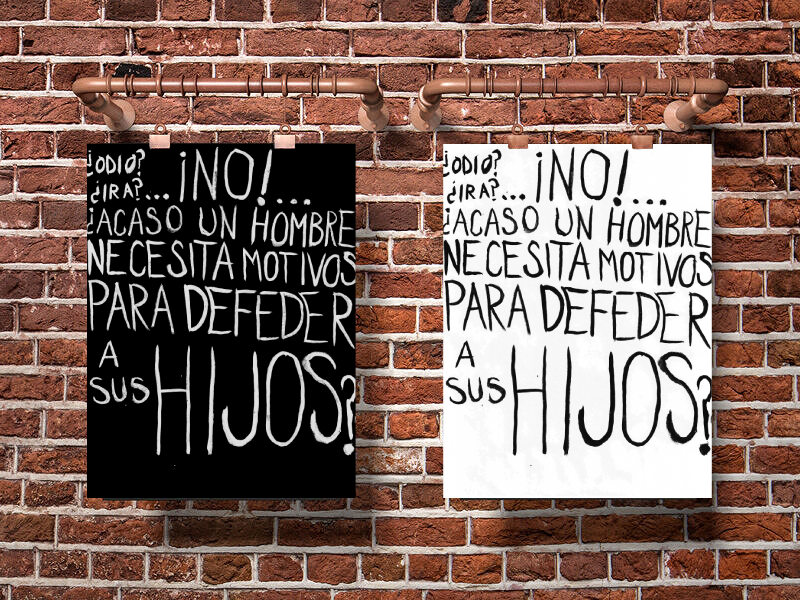 ¿ODIO?
¿IRA?... ¡NO!...
¿ACASO UN HOMBRE
NECESITA MOTIVOS
PARA DEFEDER
A
SUS HIJOS?
¿ODIO?
¿IRA?... ¡NO!...
¿ACASO UN HOMBRE
NECESITA MOTIVOS
PARA DEFEDER
A
SUS HIJOS?